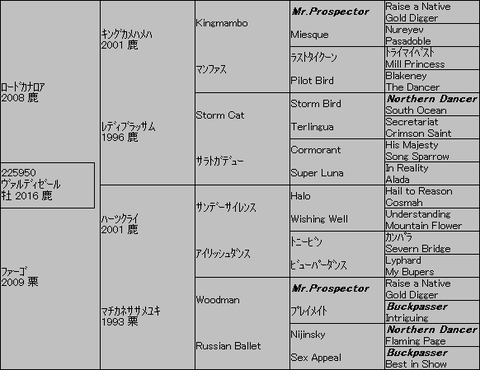 ロードカナロア
2008 鹿
225950
ヴァルディゼール
牡 2016 鹿
ファーゴ
2009 栗
キングカメハメハ
2001 鹿
レディブラッサム
1996 鹿
ハーツクライ
2001 鹿
マチカネササメユキ
1993 栗
Kingmambo
マンファス
Storm Cat
サラトガデュー
サンデーサイレンス
アイリッシュダンス
Woodman
Russian Ballet
Mr.Prospector
Miesque
ラストタイクーン
Pilot Bird
Storm Bird
Terlingua
Cormorant
Super Luna
Halo
Wishing Well
トニービン
ビューパーダンス
Mr.Prospector
プレイメイト
Nijinsky
Sex Appeal
Raise a Native
Gold Digger
Nureyev
Pasadoble
トライマイベスト
Mill Princess
Blakeney
The Dancer
Northern Dancer
South Ocean
Secretariat
Crimson Saint
His Majesty
Song Sparrow
In Reality
Alada
Hail to Reason
Cosmah
Understanding
Mountain Flower
カンパラ
Severn Bridge
Lyphard
My Bupers
Raise a Native
Gold Digger
Buckpasser
Intriguing
Northern Dancer
Flaming Page
Buckpasser
Best in Show